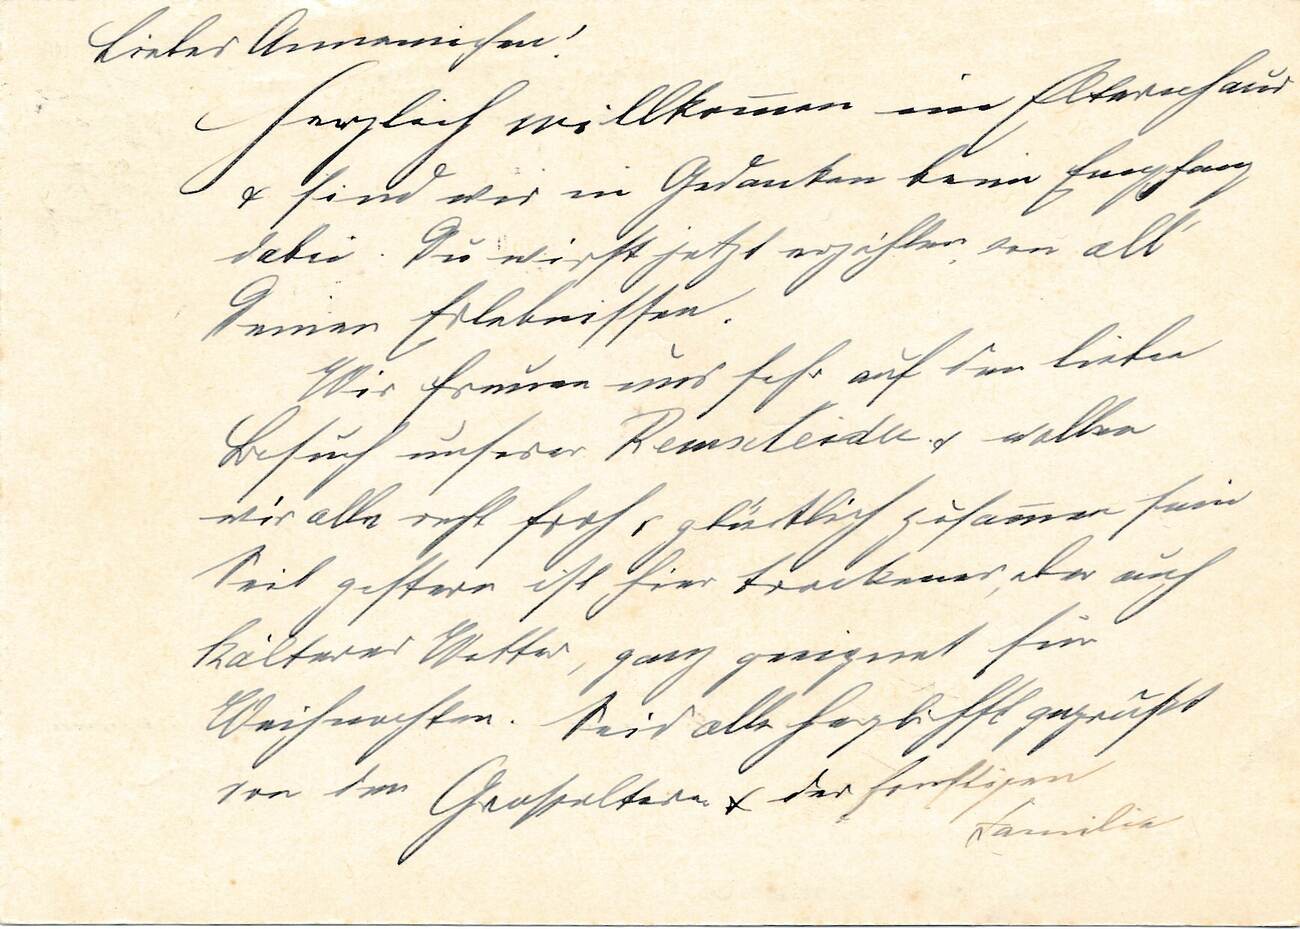 Liebes Annamichen!
Herzlich willkommen im Elternhaus
& sind wir in Gedanken beim Empfang
dabei. Du wirst jetzt erzählen von all'
Deinen Erlebnissen.
Wir freuen uns sehr auf den lieben
Besuch unserer Remscheider & wollen
wir alle recht froh & glücklich zusammen sein
Seit gestern ist hier trockenes, aber auch
kälteres Wetter, ganz geeignet für
Weihnachten. Seid alle herzlichst gegrüßt
von den Großeltern & der sonstigen
Familie